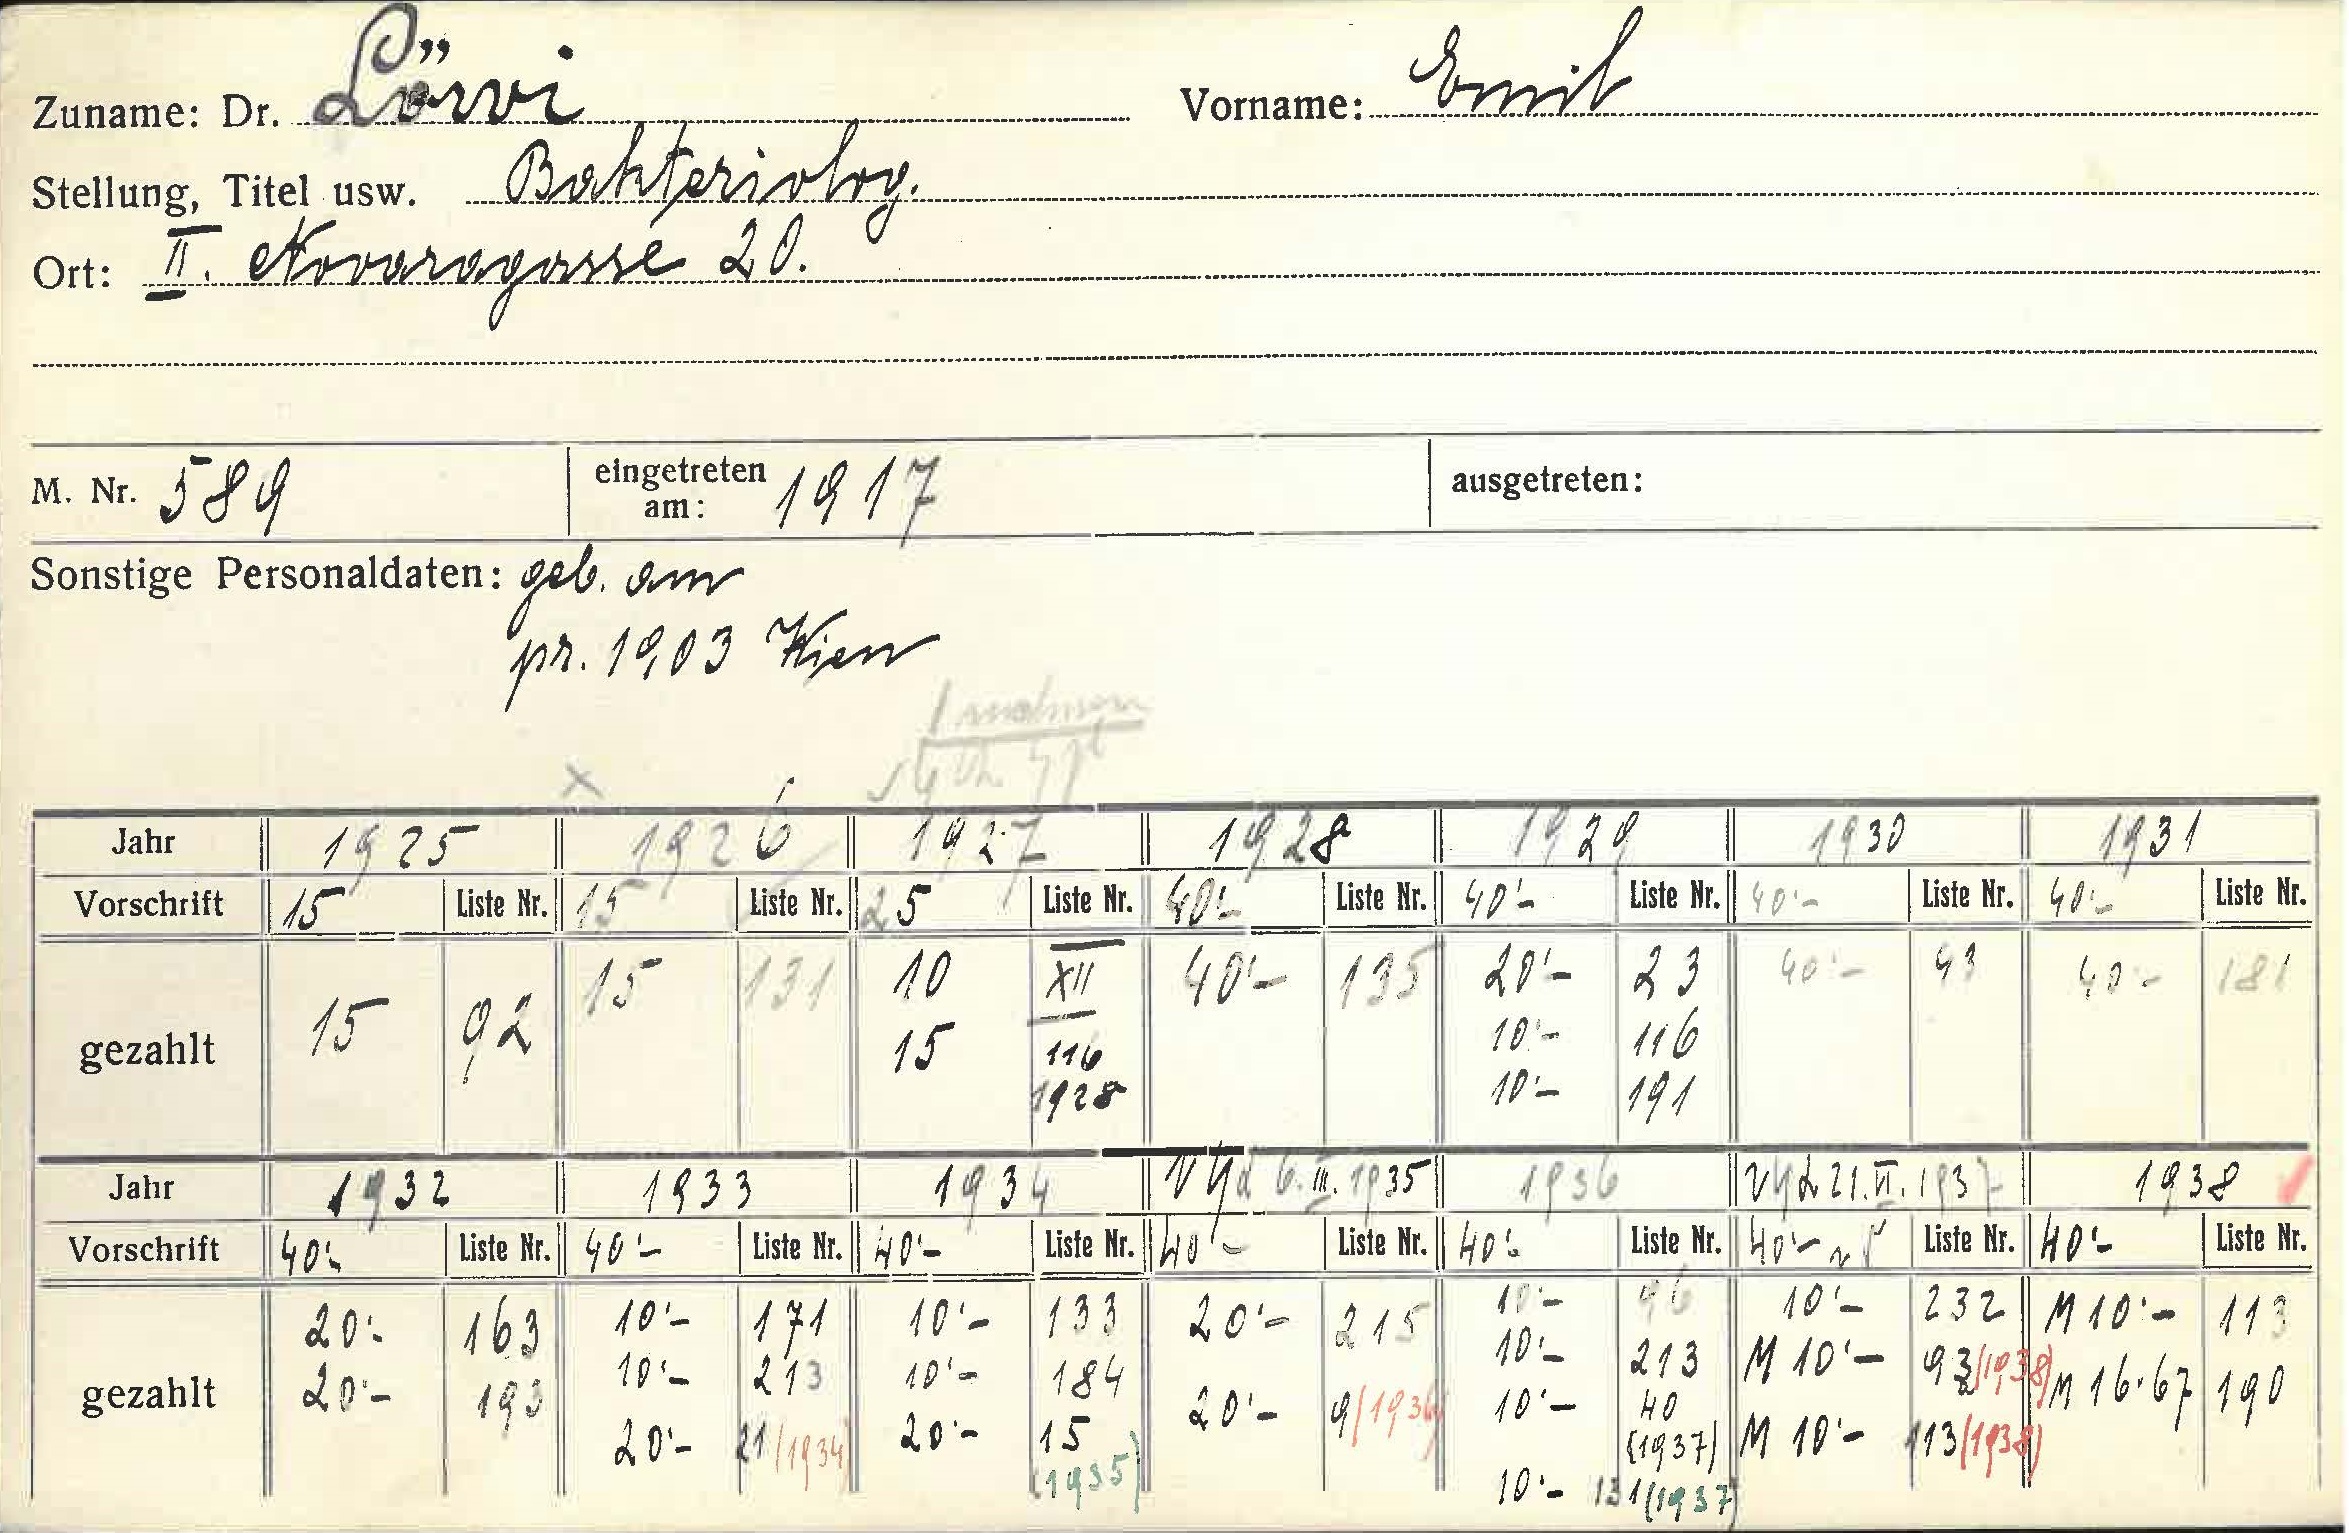 Zuname: Dr. Löwi Vorname: Emil
Stellung, Titel usw. Bakteriolog.
Ort: II. Novaragasse 20.
M. Nr. 589 eingetreten am: 1917 ausgetreten:
Sonstige Personaldaten: geb. am
pr. 1903 Wien
Jahr 1925 1926 1927 1928 1929 1930 1931
Vorschrift 15 Liste Nr. 15 Liste Nr. 25 Liste Nr. 40'- Liste Nr. 40'- Liste Nr. 40'- Liste Nr. 40'- Liste Nr.
gezahlt 15 92 15 131 10 XII 40'- 135 20'- 23 40'- 43 40'- 181
15 116 10'- 116
1928 10'- 191
Jahr 1932 1933 1934 6.III.1935 1936 21.II.1937 1938
Vorschrift 40'- Liste Nr. 40'- Liste Nr. 40'- Liste Nr. 40'- Liste Nr. 40'- Liste Nr. 40'- Liste Nr. 40'- Liste Nr.
gezahlt 20'- 163 10'- 171 10'- 133 20'- 215 10'- 46 10'- 232 M 10'- 113
20'- 193 10'- 213 10'- 184 20'- 9/1936 10'- 213 M 10'- 93/(1938) M 16.67 190
20'- 21/1934 20'- 15 10'- 40 M 10'- 113/(1938)
(1935) (1937)
10'- 131/(1937)